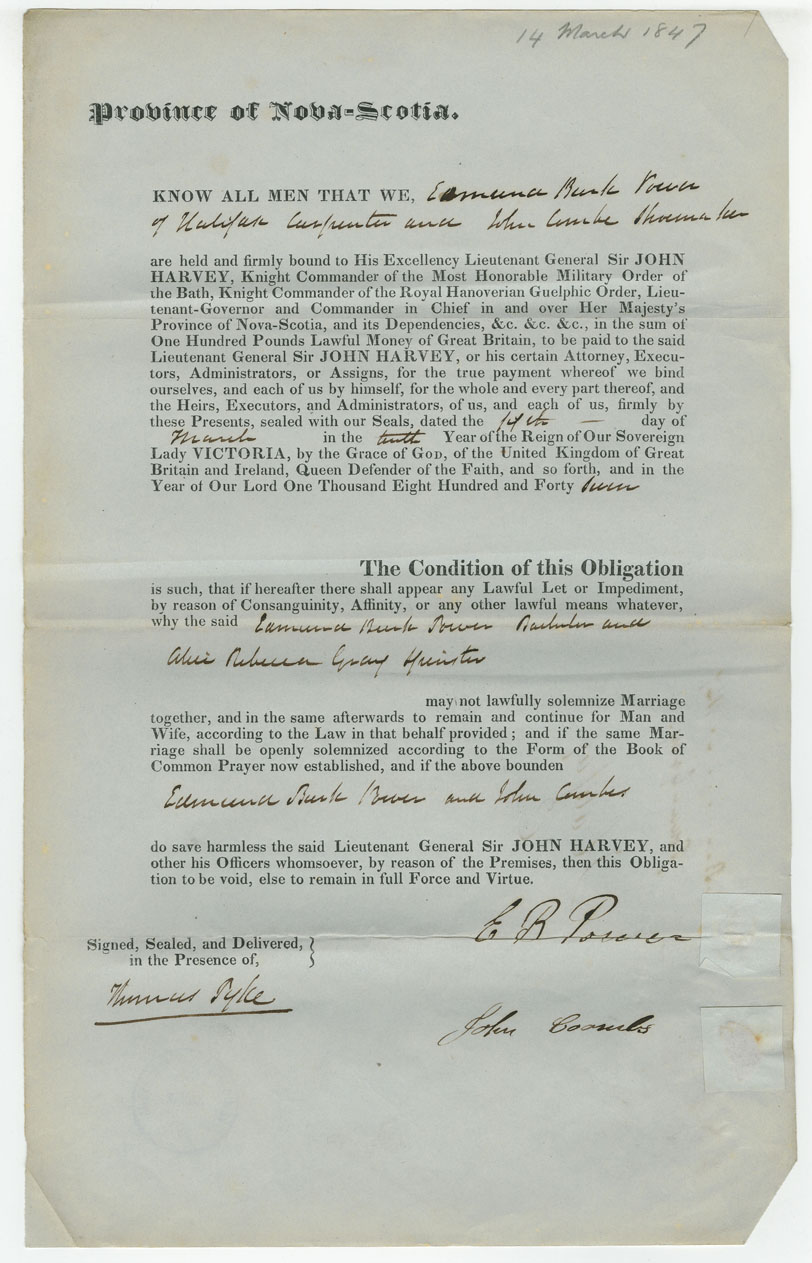 14 March 1847
Province of Nova-Scotia.
KNOW ALL MEN THAT WE, Edmund Burk Power
of Halifax Carpenter and John Combs Shoemaker
are held and firmly bound to His Excellency Lieutenant General Sir JOHN
HARVEY, Knight Commander of the Most Honorable Military Order of
the Bath, Knight Commander of the Royal Hanoverian Guelphic Order, Lieu-
tenant-Governor and Commander in Chief in and over Her Majesty's
Province of Nova-Scotia, and its Dependencies, &c. &c. &c., in the sum of
One Hundred Pounds Lawful Money of Great Britain, to be paid to the said
Lieutenant General Sir JOHN HARVEY, or his certain Attorney, Execu-
tors, Administrators, or Assigns, for the true payment whereof we bind
ourselves, and each of us by himself, for the whole and every part thereof, and
the Heirs, Executors, and Administrators, of us, and each of us, firmly by
these Presents, sealed with our Seals, dated the 14th — day of
March in the tenth Year of the Reign of Our Sovereign
Lady VICTORIA, by the Grace of GOD, of the United Kingdom of Great
Britain and Ireland, Queen Defender of the Faith, and so forth, and in the
Year of Our Lord One Thousand Eight Hundred and Forty seven
The Condition of this Obligation
is such, that if hereafter there shall appear any Lawful Let or Impediment,
by reason of Consanguinity, Affinity, or any other lawful means whatever,
why the said Edmund Burk Power Bachelor and
Alice Rebecca Gray Spinster
may not lawfully solemnize Marriage
together, and in the same afterwards to remain and continue for Man and
Wife, according to the Law in that behalf provided; and if the same Mar-
riage shall be openly solemnized according to the Form of the Book of
Common Prayer now established, and if the above bounden
Edmund Burk Power and John Combs
do save harmless the said Lieutenant General Sir JOHN HARVEY, and
other his Officers whomsoever, by reason of the Premises, then this Obliga-
tion to be void, else to remain in full Force and Virtue.
E B Power
Signed, Sealed, and Delivered,
in the Presence of,
Thomas Pyke
John Coombs